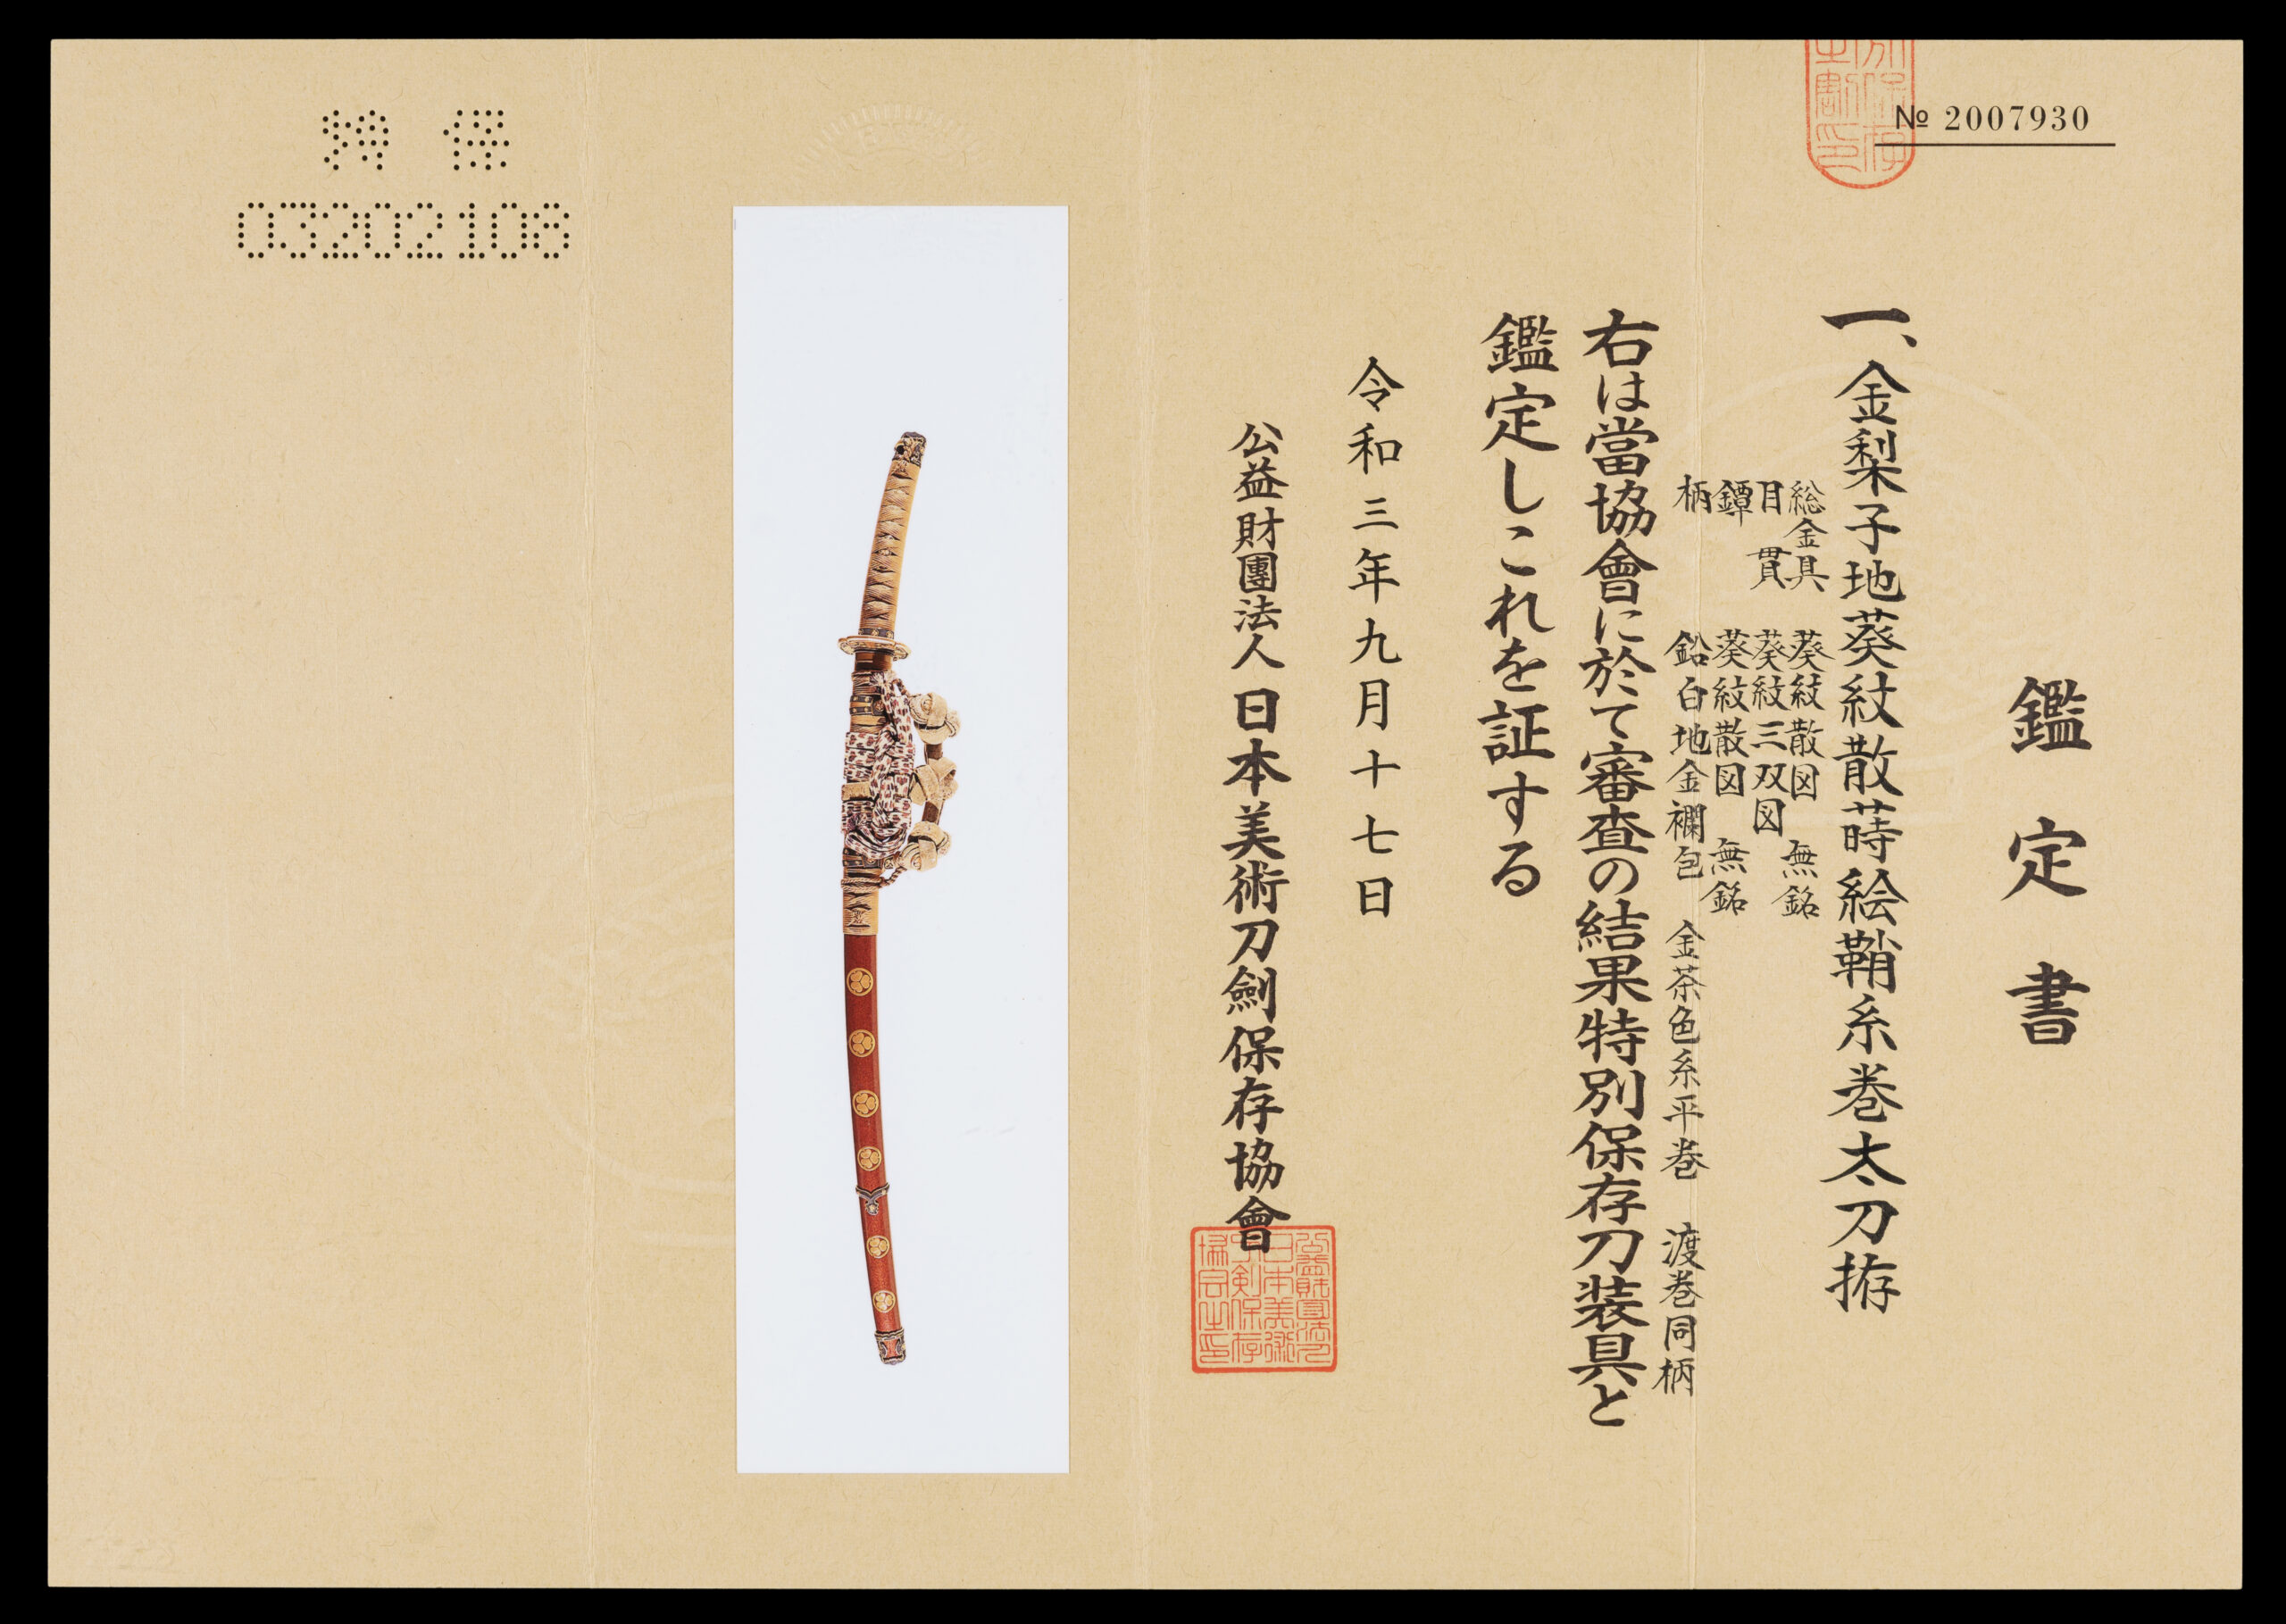 № 2007930
鑑定書
一、金梨子地葵紋散蒔絵鞘糸巻太刀拵
総金具 葵紋散図 無銘
目貫 葵紋三双図
鐔 葵紋散図 無銘
柄 鉛白地金襴包 金茶色糸平巻 渡巻同柄
右は當協會に於て審査の結果特別保存刀装具と
鑑定しこれを証する
令和三年九月十七日
公益財團法人 日本美術刀劍保存協會
特保
03202108